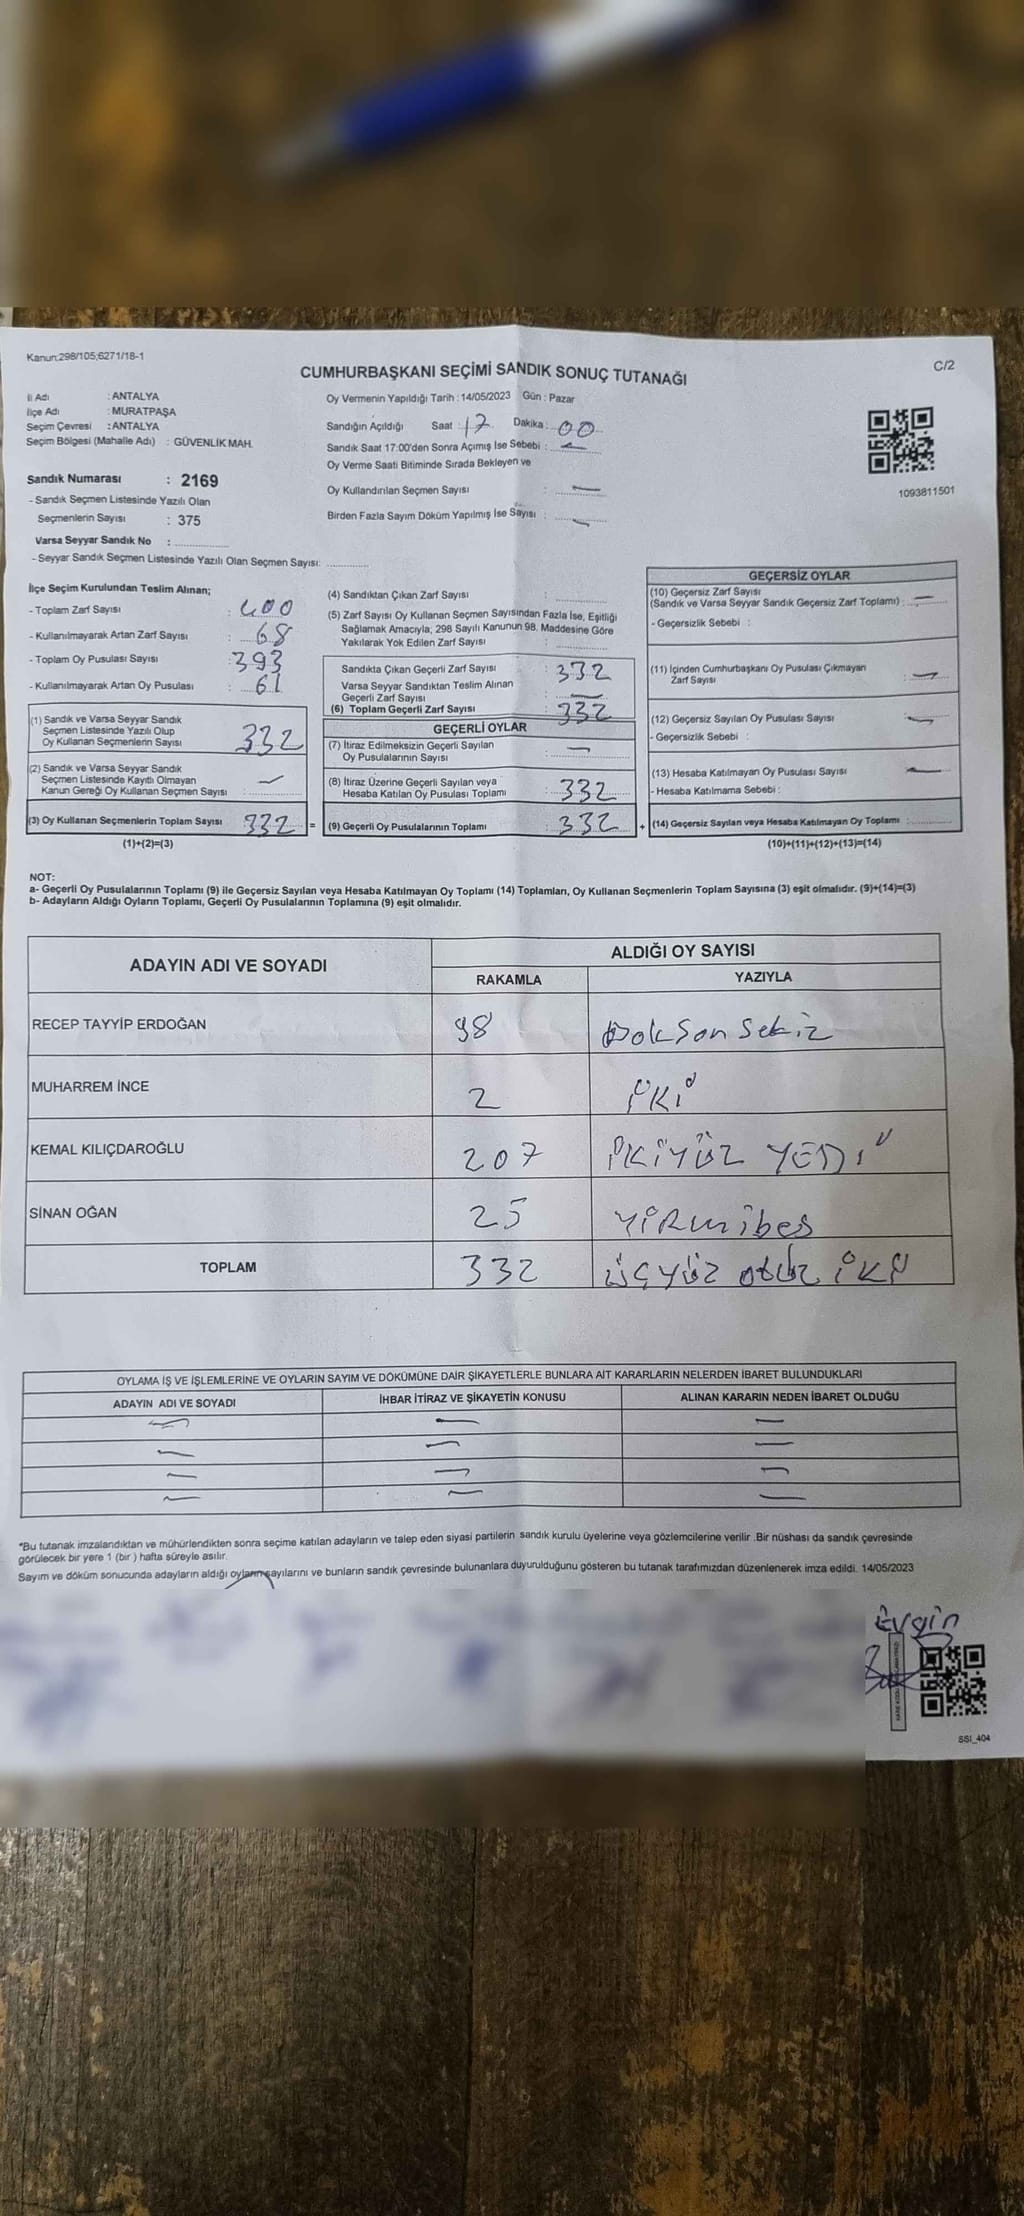 Kanun:298/105;6271/18-1
C/2
CUMHURBAŞKANI SEÇİMİ SANDIK SONUÇ TUTANAĞI
İl Adı : ANTALYA
İlçe Adı : MURATPAŞA
Seçim Çevresi : ANTALYA
Seçim Bölgesi (Mahalle Adı) : GÜVENLİK MAH.
Oy Vermenin Yapıldığı Tarih : 14/05/2023 Gün : Pazar
Sandığın Açıldığı Saat : 17 Dakika : 00
Sandık Saat 17:00'den Sonra Açımış İse Sebebi : —
Oy Verme Saati Bitiminde Sırada Bekleyen ve
Oy Kullandırılan Seçmen Sayısı : —
Birden Fazla Sayım Döküm Yapılmış İse Sayısı : —
1093811501
Sandık Numarası : 2169
- Sandık Seçmen Listesinde Yazılı Olan
Seçmenlerin Sayısı : 375
Varsa Seyyar Sandık No :
- Seyyar Sandık Seçmen Listesinde Yazılı Olan Seçmen Sayısı:
İlçe Seçim Kurulundan Teslim Alınan;
- Toplam Zarf Sayısı : 400
- Kullanılmayarak Artan Zarf Sayısı : 68
- Toplam Oy Pusulası Sayısı : 393
- Kullanılmayarak Artan Oy Pusulası : 61
(1) Sandık ve Varsa Seyyar Sandık
Seçmen Listesinde Yazılı Olup
Oy Kullanan Seçmenlerin Sayısı 332
(2) Sandık ve Varsa Seyyar Sandık
Seçmen Listesinde Kayıtlı Olmayan
Kanun Gereği Oy Kullanan Seçmen Sayısı : —
(3) Oy Kullanan Seçmenlerin Toplam Sayısı 332 =
(1)+(2)=(3)
(4) Sandıktan Çıkan Zarf Sayısı :
(5) Zarf Sayısı Oy Kullanan Seçmen Sayısından Fazla İse, Eşitliği
Sağlamak Amacıyla; 298 Sayılı Kanunun 98. Maddesine Göre
Yakılarak Yok Edilen Zarf Sayısı :
Sandıkta Çıkan Geçerli Zarf Sayısı : 332
Varsa Seyyar Sandıktan Teslim Alınan
Geçerli Zarf Sayısı : —
(6) Toplam Geçerli Zarf Sayısı : 332
GEÇERLİ OYLAR
(7) İtiraz Edilmeksizin Geçerli Sayılan
Oy Pusulalarının Sayısı : —
(8) İtiraz Üzerine Geçerli Sayılan veya
Hesaba Katılan Oy Pusulası Toplamı : 332
(9) Geçerli Oy Pusulalarının Toplamı : 332 +
GEÇERSİZ OYLAR
(10) Geçersiz Zarf Sayısı
(Sandık ve Varsa Seyyar Sandık Geçersiz Zarf Toplamı) : —
- Geçersizlik Sebebi :
(11) İçinden Cumhurbaşkanı Oy Pusulası Çıkmayan
Zarf Sayısı : —
(12) Geçersiz Sayılan Oy Pusulası Sayısı : —
- Geçersizlik Sebebi :
(13) Hesaba Katılmayan Oy Pusulası Sayısı : —
- Hesaba Katılmama Sebebi :
(14) Geçersiz Sayılan veya Hesaba Katılmayan Oy Toplamı :
(10)+(11)+(12)+(13)=(14)
NOT:
a- Geçerli Oy Pusulalarının Toplamı (9) ile Geçersiz Sayılan veya Hesaba Katılmayan Oy Toplamı (14) Toplamları, Oy Kullanan Seçmenlerin Toplam Sayısına (3) eşit olmalıdır. (9)+(14)=(3)
b- Adayların Aldığı Oyların Toplamı, Geçerli Oy Pusulalarının Toplamına (9) eşit olmalıdır.
ADAYIN ADI VE SOYADI ALDIĞI OY SAYISI
RAKAMLA YAZIYLA
RECEP TAYYİP ERDOĞAN 98 Doksan sekiz
MUHARREM İNCE 2 İKİ
KEMAL KILIÇDAROĞLU 207 İKİYÜZ YEDİ
SİNAN OĞAN 25 YİRmibeş
TOPLAM 332 ÜÇYÜZ otuz İKİ
OYLAMA İŞ VE İŞLEMLERİNE VE OYLARIN SAYIM VE DÖKÜMÜNE DAİR ŞİKAYETLERLE BUNLARA AİT KARARLARIN NELERDEN İBARET BULUNDUKLARI
ADAYIN ADI VE SOYADI İHBAR İTİRAZ VE ŞİKAYETİN KONUSU ALINAN KARARIN NEDEN İBARET OLDUĞU
— — —
— — —
— — —
— — —
*Bu tutanak imzalandıktan ve mühürlendikten sonra seçime katılan adayların ve talep eden siyasi partilerin sandık kurulu üyelerine veya gözlemcilerine verilir .Bir nüshası da sandık çevresinde
görülecek bir yere 1 (bir ) hafta süreyle asılır.
Sayım ve döküm sonucunda adayların aldığı oyların sayılarını ve bunların sandık çevresinde bulunanlara duyurulduğunu gösteren bu tutanak tarafımızdan düzenlenerek imza edildi. 14/05/2023
Evgin
SSI_404